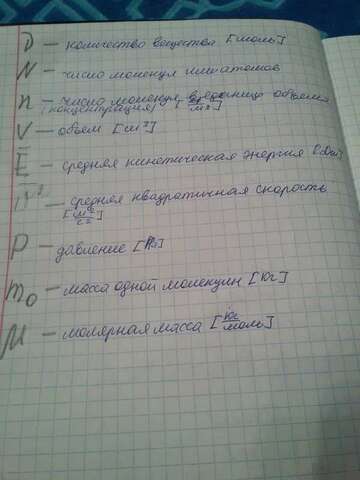 ν — количество вещества [моль]
N — число молекул или атомов
n — число молекул в единице объема
(концентрация)
V — объем [м³]
E̅ — средняя кинетическая энергия [Дж]
— средняя квадратичная скорость
[м²/с²]
P — давление [Па]
m₀ — масса одной молекулы [кг]
M — молярная масса [кг/моль]